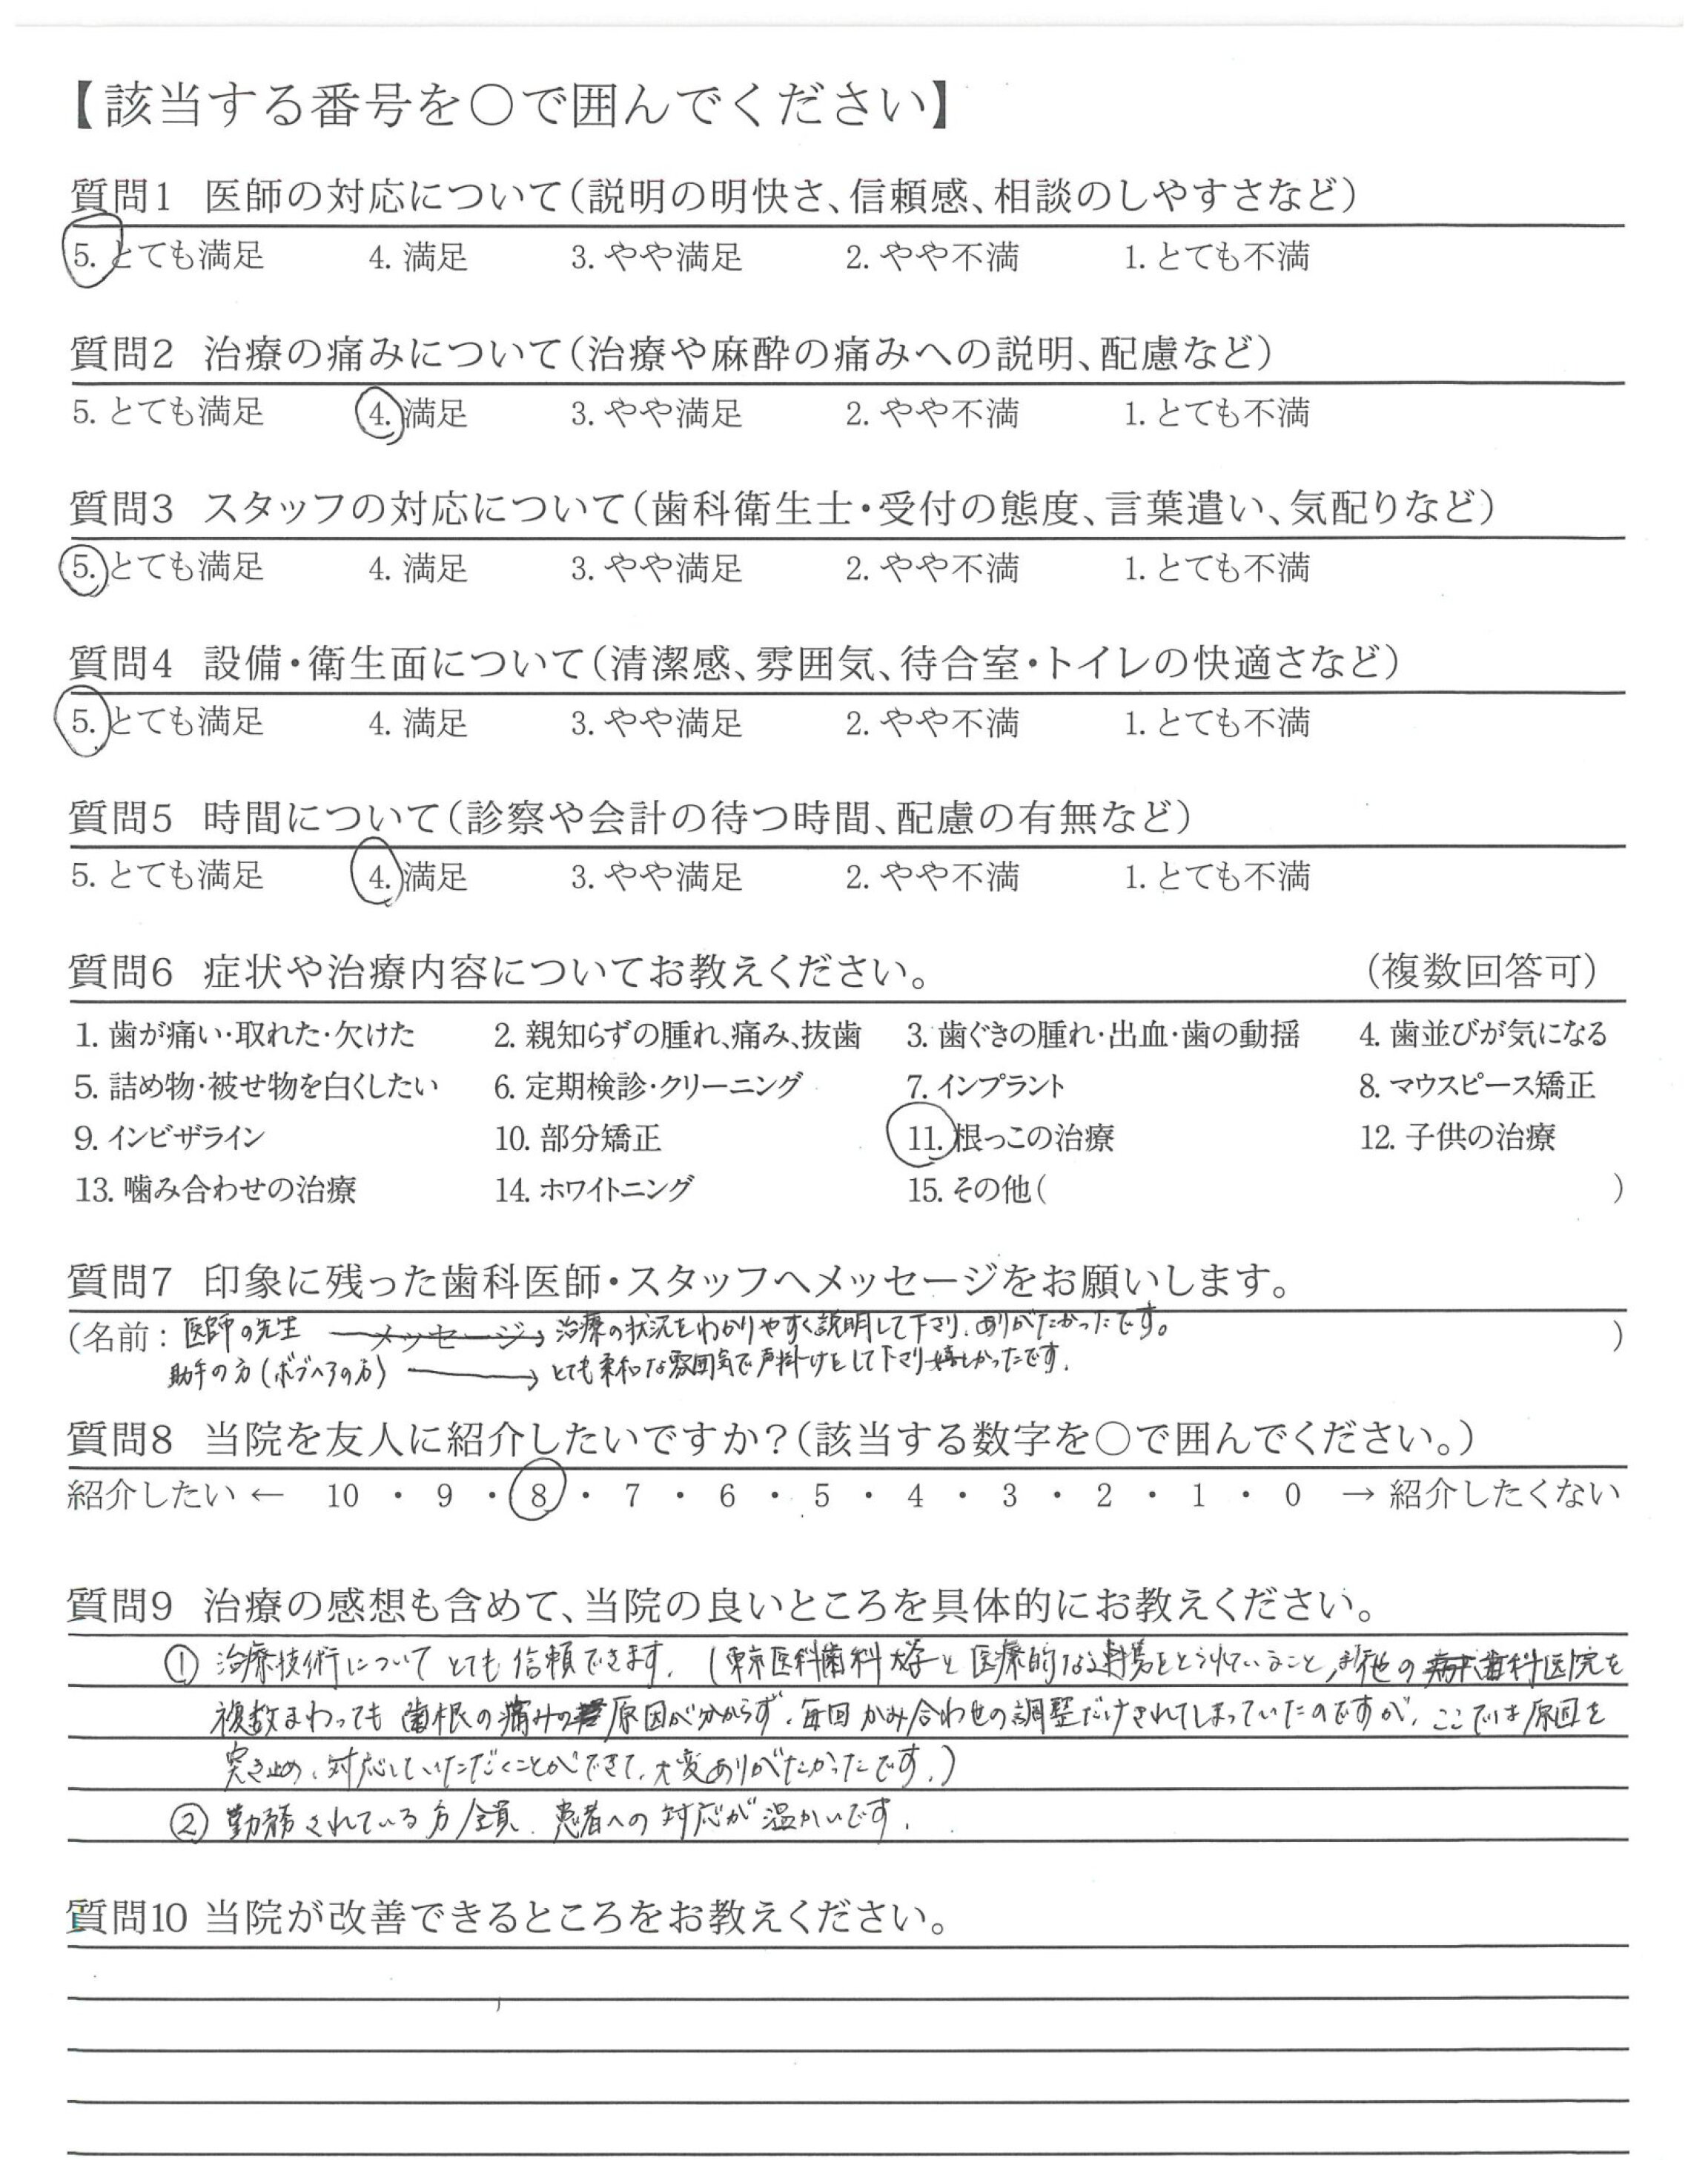 【該当する番号を○で囲んでください】
質問1 医師の対応について(説明の明快さ、信頼感、相談のしやすさなど)
5. とても満足 4. 満足 3. やや満足 2. やや不満 1. とても不満
質問2 治療の痛みについて(治療や麻酔の痛みへの説明、配慮など)
5. とても満足 4. 満足 3. やや満足 2. やや不満 1. とても不満
質問3 スタッフの対応について(歯科衛生士・受付の態度、言葉遣い、気配りなど)
5. とても満足 4. 満足 3. やや満足 2. やや不満 1. とても不満
質問4 設備・衛生面について(清潔感、雰囲気、待合室・トイレの快適さなど)
5. とても満足 4. 満足 3. やや満足 2. やや不満 1. とても不満
質問5 時間について(診察や会計の待つ時間、配慮の有無など)
5. とても満足 4. 満足 3. やや満足 2. やや不満 1. とても不満
質問6 症状や治療内容についてお教えください。 (複数回答可)
1. 歯が痛い・取れた・欠けた 2. 親知らずの腫れ、痛み、抜歯 3. 歯ぐきの腫れ・出血・歯の動揺 4. 歯並びが気になる
5. 詰め物・被せ物を白くしたい 6. 定期検診・クリーニング 7. インプラント 8. マウスピース矯正
9. インビザライン 10. 部分矯正 11. 根っこの治療 12. 子供の治療
13. 噛み合わせの治療 14. ホワイトニング 15. その他( )
質問7 印象に残った歯科医師・スタッフへメッセージをお願いします。
(名前: 医師の先生 メッセージ→ 治療の状況をわかりやすく説明して下さり、ありがたかったです。 )
助手の方(ボブヘアの方) → とても柔和な雰囲気で声掛けをして下さり嬉しかったです。
質問8 当院を友人に紹介したいですか?(該当する数字を○で囲んでください。)
紹介したい ← 10 ・ 9 ・ 8 ・ 7 ・ 6 ・ 5 ・ 4 ・ 3 ・ 2 ・ 1 ・ 0 → 紹介したくない
質問9 治療の感想も含めて、当院の良いところを具体的にお教えください。
① 治療技術について とても信頼できます。(東京医科歯科大学と医療的な連携をとられていること、また他の歯科医院を
複数まわっても歯根の痛みの原因が分からず、毎回かみ合わせの調整だけされてしまっていたのですが、ここでは原因を
突き止め、対応していただくことができて、大変ありがたかったです。)
② 勤務されている方全員、患者への対応が温かいです。
質問10 当院が改善できるところをお教えください。